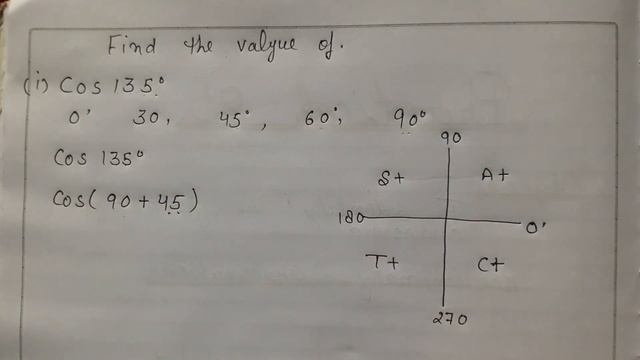 Find the valyue of.
(i) Cos 135°
0' 30, 45°, 60°, 90°
Cos 135°
Cos( 90 + 45)
90
S+ A+
180 0'
T+ C+
270